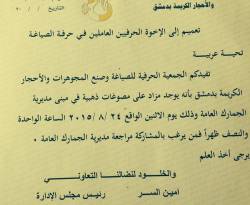 والأحجار الكريمة بدمشق
التاريخ / / ٢٠
تعميم إلى الإخوة الحرفيين العاملين في حرفة الصياغة
تحية عربية
تفيدكم الجمعية الحرفية للصياغة وصنع المجوهرات والأحجار
الكريمة بدمشق بأنه يوجد مزاد على مصوغات ذهبية في مبنى مديرية
الجمارك العامة وذلك يوم الاثنين الواقع ٢٤ / ٨ / ٢٠١٥ الساعة الواحدة
والنصف ظهراً فمن يرغب بالمشاركة مراجعة مديرية الجمارك العامة .
يرجى أخذ العلم
والخلود لنضالنا التعاوني
أمين السر رئيس مجلس الإدارة